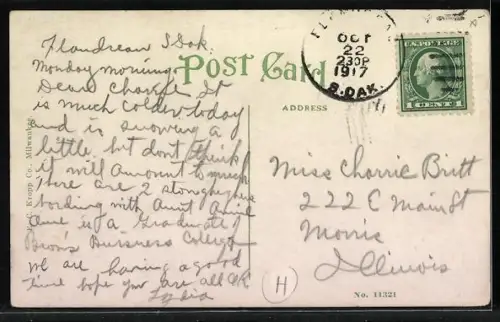 Flandreau S. Dak.
Monday morning
Dear Charrie It
is much colder today
and is snowing a
little, but dont think
it will amount to much
There are 2
bording with Aunt
one is a Graduate of
Browns Bursness College
we are having a good
time hope you are all OK
Lydia
E. C. Kropp Co., Milwaukee
Post Card
ADDRESS
OCT
22
230P
1917
S. DAK.
U.S. POSTAGE
1 CENTS 1
Miss Charrie Britt
222 E Main St
Morris
Illinois
H
No. 11321